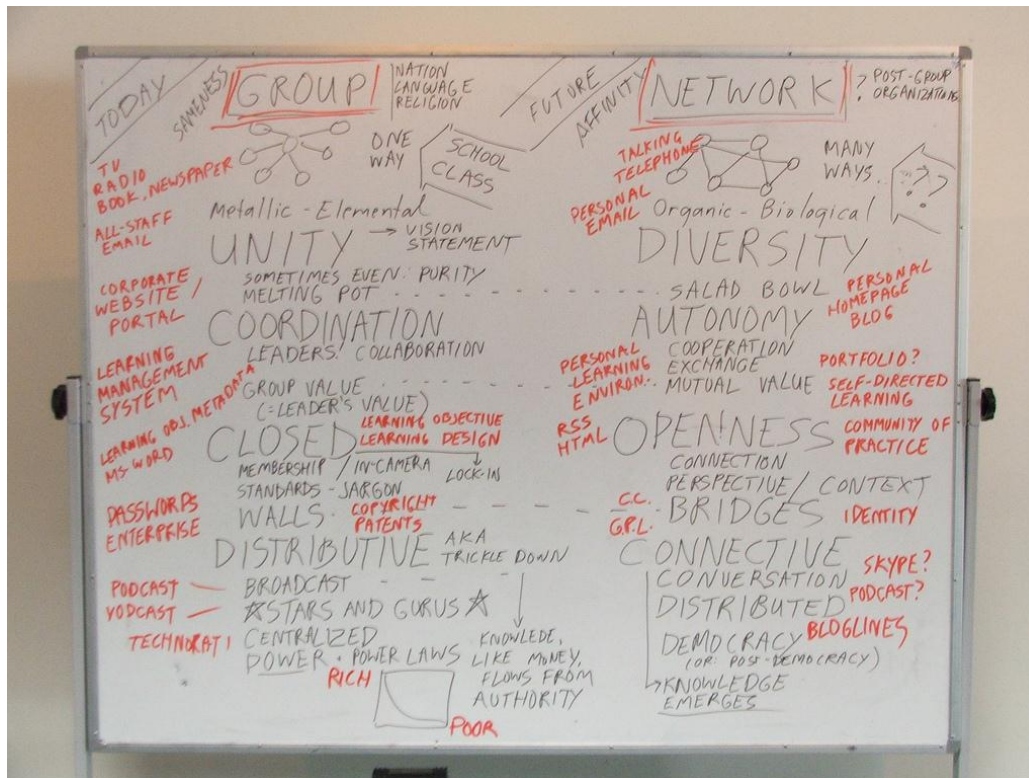 TODAY
SAMENESS
GROUP
NATION
LANGUAGE
RELIGION
ONE
WAY
SCHOOL
CLASS
TV
RADIO
BOOK, NEWSPAPER
ALL-STAFF
EMAIL
Metallic - Elemental
UNITY → VISION
STATEMENT
SOMETIMES EVEN: PURITY
MELTING POT
CORPORATE
WEBSITE /
PORTAL
COORDINATION
LEADERS! COLLABORATION
LEARNING
MANAGEMENT
SYSTEM
GROUP VALUE
(=LEADER'S VALUE)
LEARNING OBJ. METADATA
MS WORD
CLOSED
LEARNING OBJECTIVE
LEARNING DESIGN
MEMBERSHIP / IN-CAMERA
LOCK-IN
STANDARDS - JARGON
WALLS
COPYRIGHT
PATENTS
PASSWORDS
ENTERPRISE
DISTRIBUTIVE AKA
TRICKLE DOWN
PODCAST — BROADCAST
VODCAST — ☆STARS AND GURUS☆
TECHNORATI
CENTRALIZED
POWER • POWER LAWS
RICH
POOR
KNOWLEDE,
LIKE MONEY,
FLOWS FROM
AUTHORITY
FUTURE
AFFINITY
NETWORK
? POST-GROUP
ORGANIZATIONS
TALKING
TELEPHONE
MANY
WAYS..
???
PERSONAL
EMAIL
Organic - Biological
DIVERSITY
SALAD BOWL
PERSONAL
HOMEPAGE
BLOG
AUTONOMY
COOPERATION
EXCHANGE
MUTUAL VALUE
PERSONAL
LEARNING
ENVIRON.
PORTFOLIO?
SELF-DIRECTED
LEARNING
RSS
HTML
OPENNESS
COMMUNITY OF
PRACTICE
CONNECTION
PERSPECTIVE / CONTEXT
C.C.
G.P.L.
BRIDGES
IDENTITY
CONNECTIVE
CONVERSATION
SKYPE?
PODCAST?
DISTRIBUTED
DEMOCRACY
BLOGLINES
(OR: POST-DEMOCRACY)
→KNOWLEDGE
EMERGES